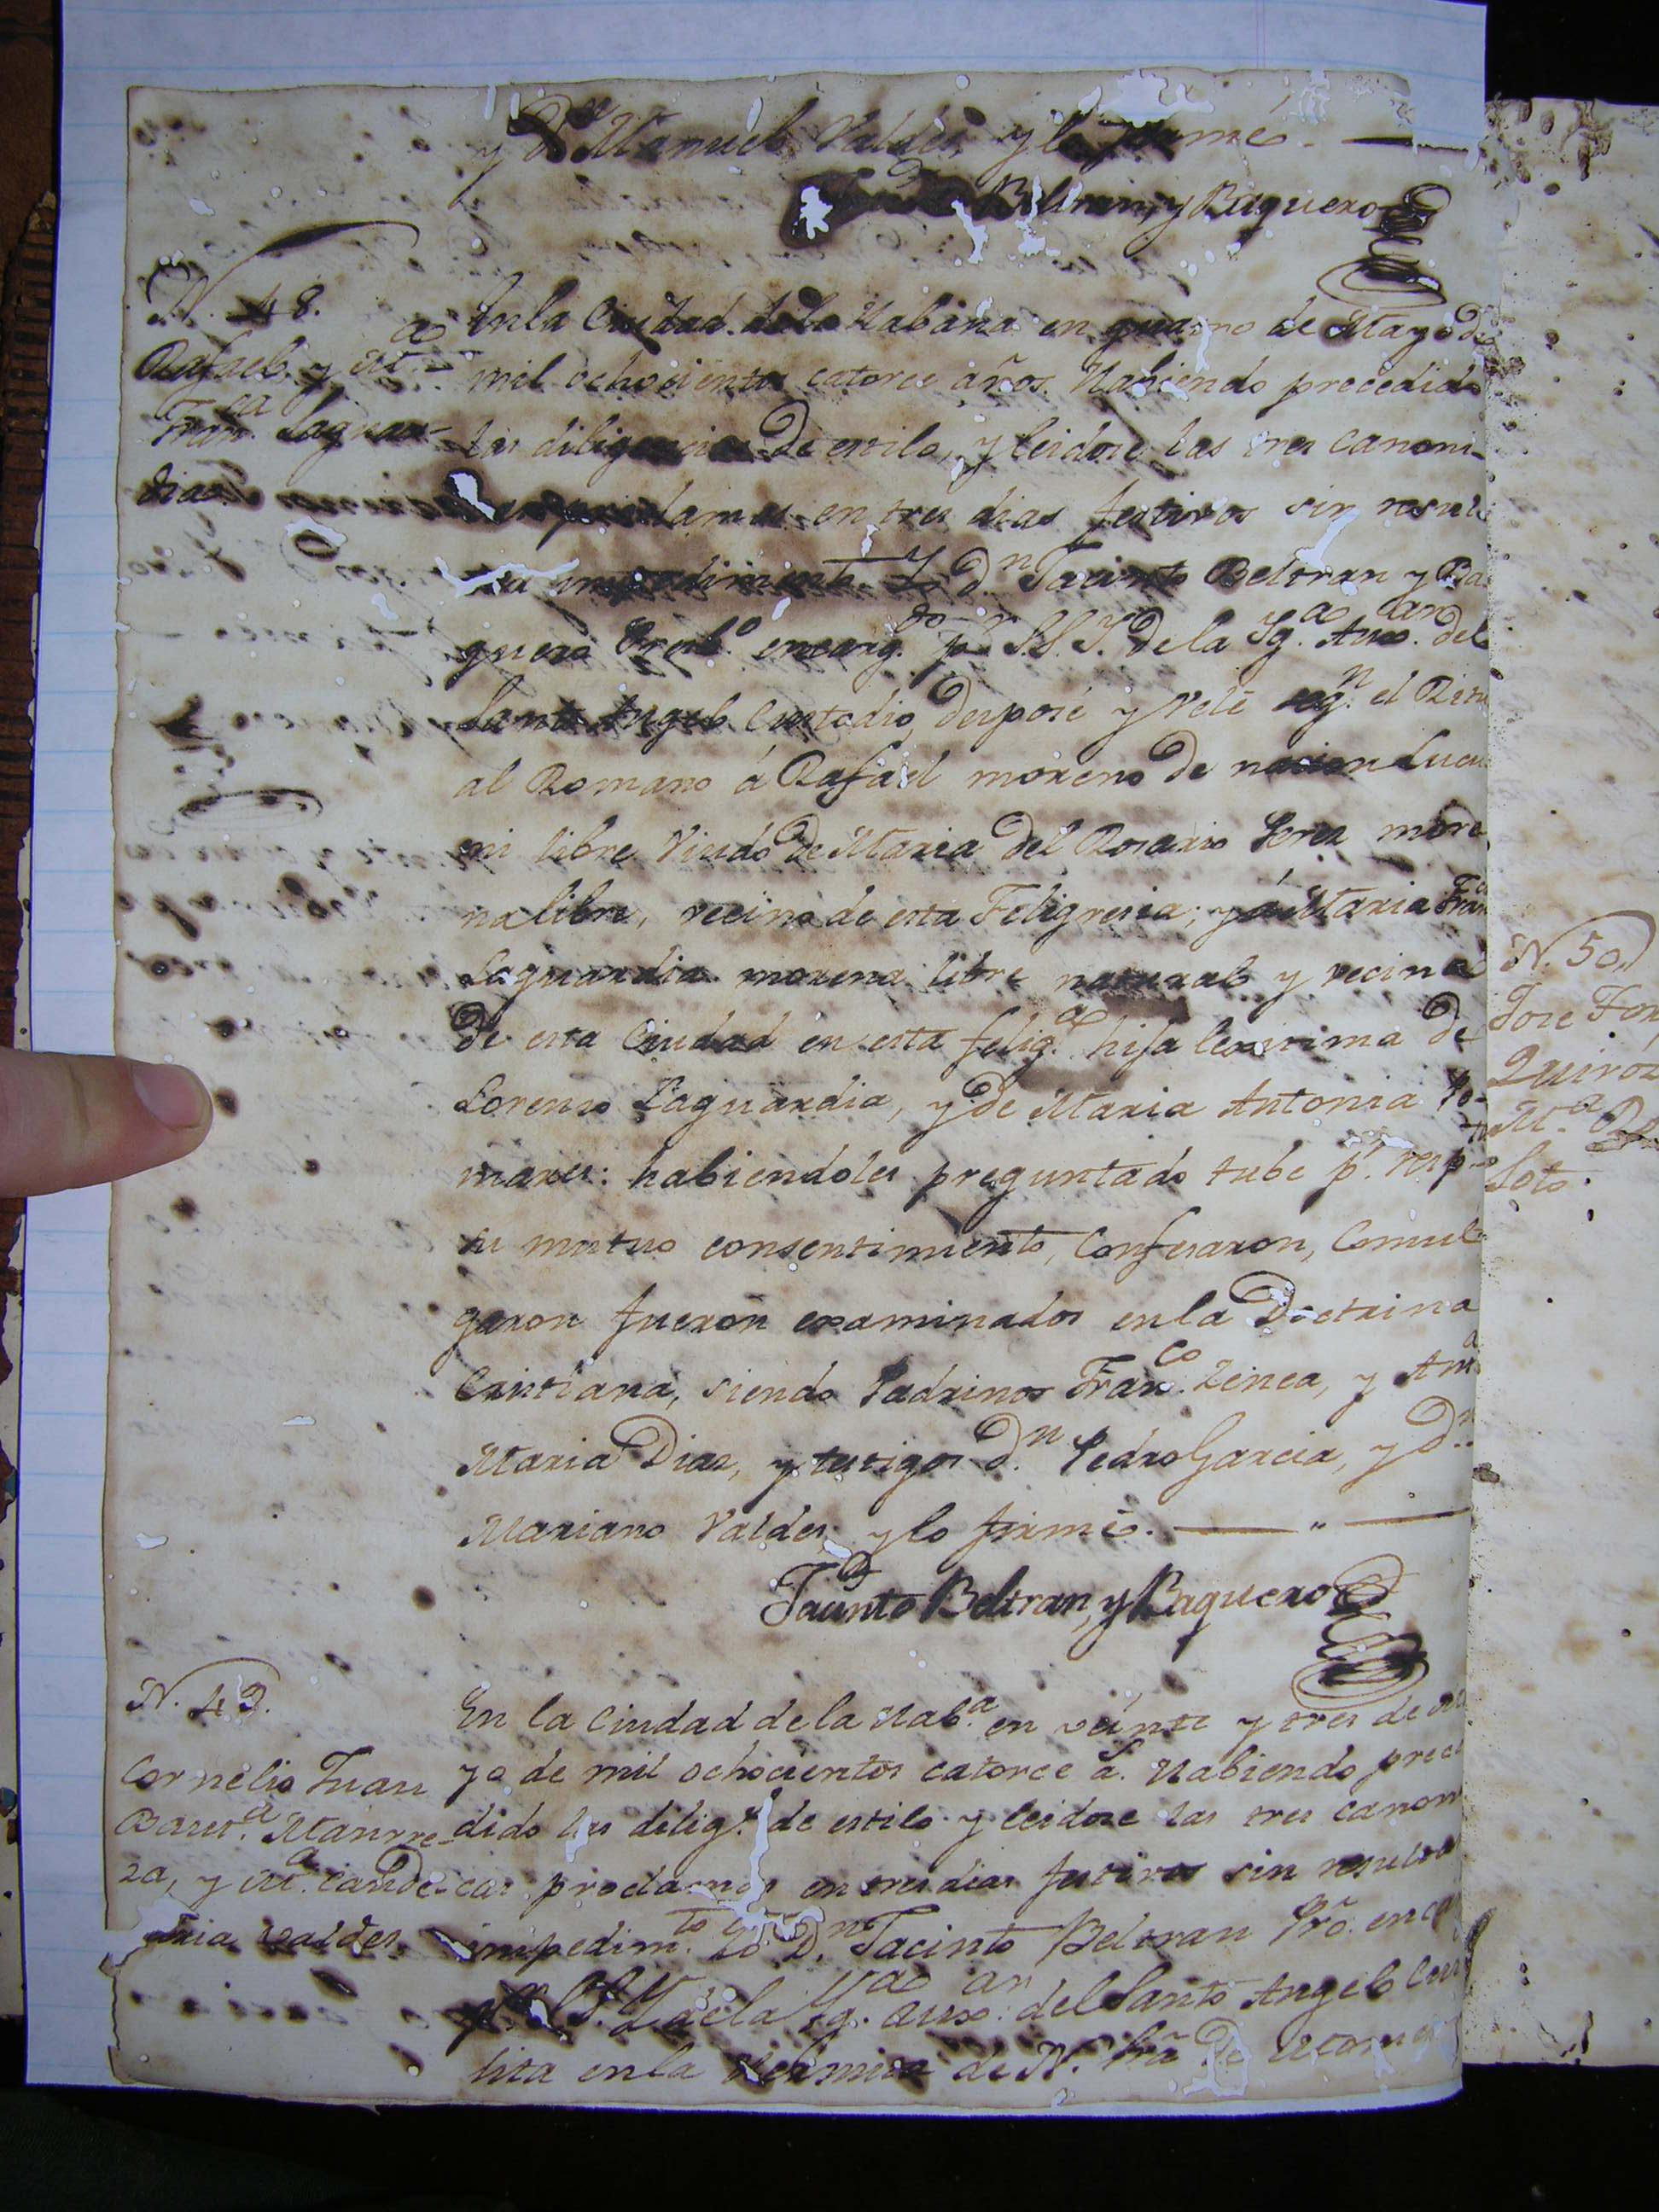 y Dn Manuel Valdes, y lo firmé.
Jacinto Beltran, y Baquero
N. 48.
Rafael, y Ma
Franca Laguar-
dia
En la Ciudad de la Habana en quatro de Mayo de
mil ochocientos catorce años. Habiendo precedido
las diligencias de estilo, y leidose las tres canoni-
proclamas en tres dias festivos sin resul
impedimento Yo Dn Jacinto Beltran y Ba
quero Presbo. encargdo pr S.S.Y. de la Yga. Auxar. del
Santo Angel Custodio, desposé y velé segn. el Ritu
al Romano á Rafael moreno de nacion Lucu
mi libre Viudo de Maria del Rosario Peres more
na libre, vecino de esta Feligresia; y á Maria Franca
Laguardia morena libre natural y vecina
de esta Ciudad en esta feliga. hija lexitima de
Lorenzo Laguardia, y de Maria Antonia Po-
mares: habiendoles preguntado tube pr. resp
su mutuo consentimiento, Confesaron, Comul
garon fueron examinados en la Doctrina
Cristiana, siendo Padrinos Franco. Zenea, y Ana
Maria Dias, y testigos Dn. Pedro Garcia, y Dn.
Mariano Valdes, y lo firmé. — " —
Jacinto Beltran, y Baquero
N. 49.
Cornelio Juan
Bauta. Manrre
za, y Ma. Cande-
laria Valdes
En la Ciudad de la Haba. en veinte y tres de Ma
yo de mil ochocientos catorce as. Habiendo prece
dido las diligs. de estilo y leidose las tres canoni
cas proclamas en tres dias festivos sin resultar
impedimto. Yo Dn. Jacinto Beltran Pro. enca
pr S.S.Y. de la Yga. auxar. del Santo Angel Cus
sita en la Hermita de N. Sra. De
N. 50.
Jose Fon
Quiroz
Ma.
Soto.